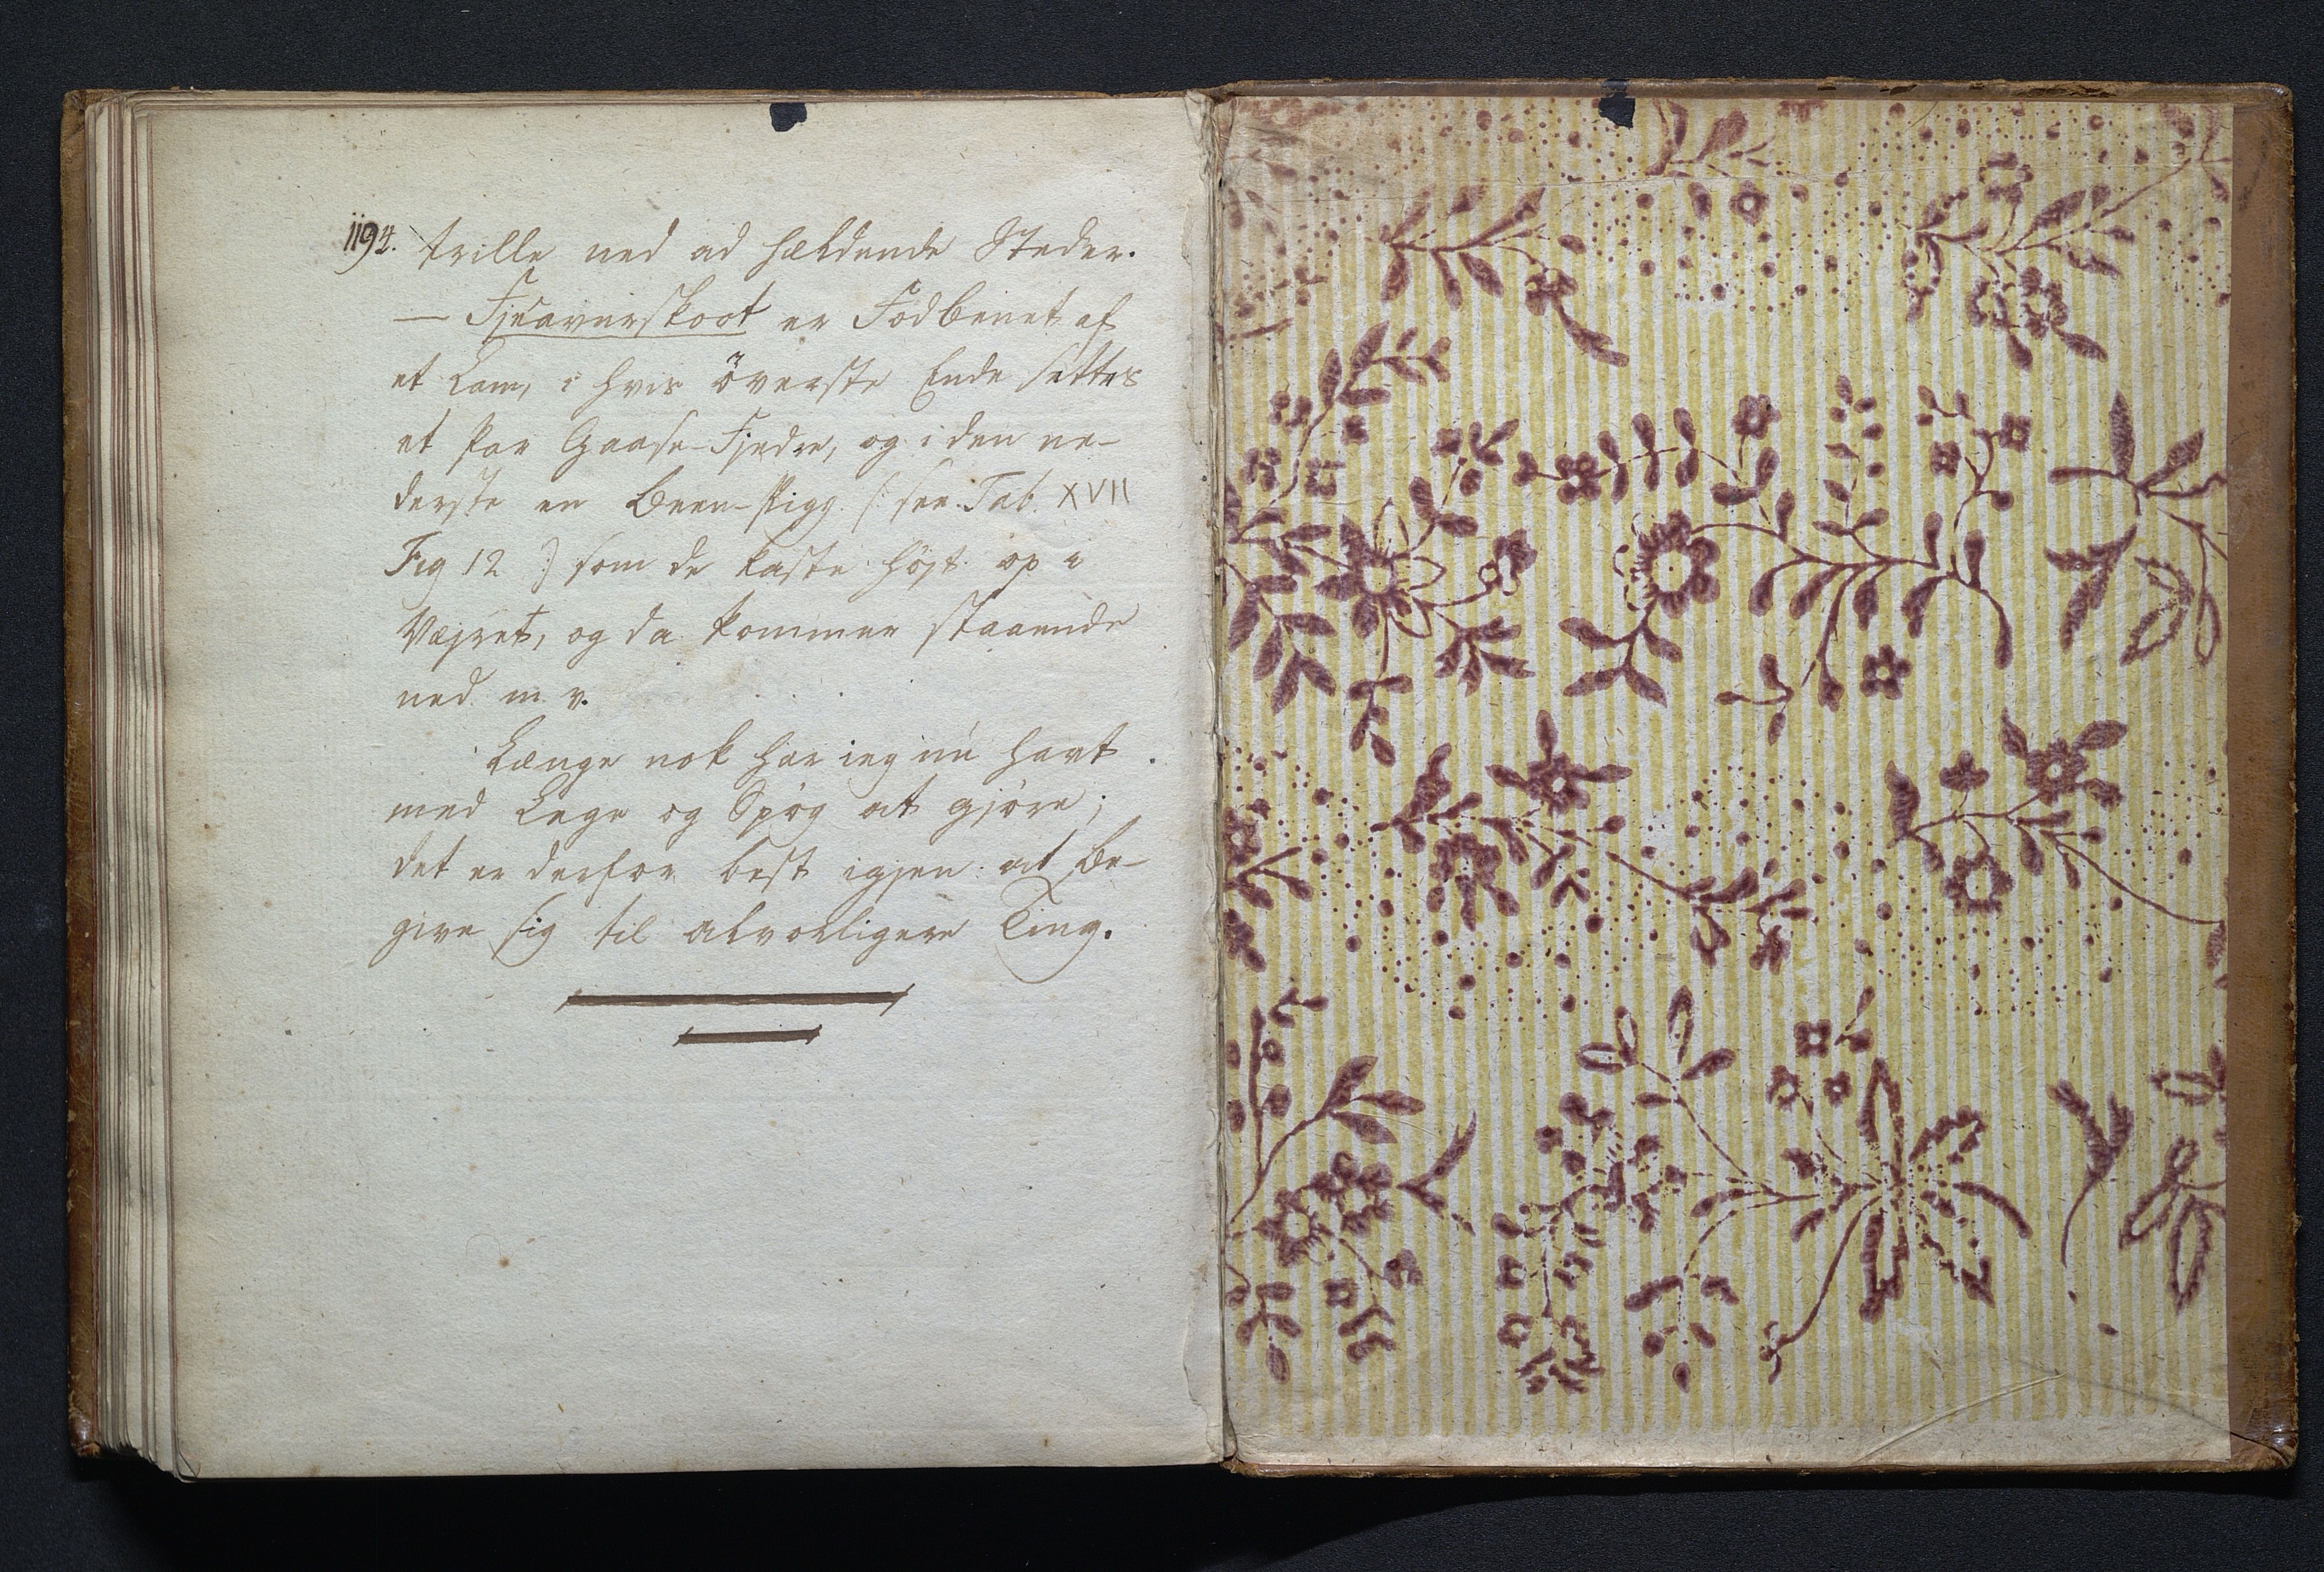 1194. trille ned ad heldende Steder.
— Fjeaverskoot er Fodbenet af
et Lam, i hvis överste Ende settes
et Par Gaase-Fjedre, og i den ne-
derste en Been-Pigg. /: see Tab. XVII
Fig 12 :/ som de kaste höjt op i
Vejret, og da kommer staaende
ned m. v.
Længe nok har ieg nu havt
med Lege og Spög at gjöre;
det er derfor best igjen at be-
give sig til alvorligere Ting.